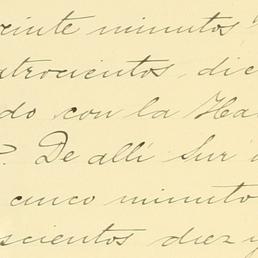 veinte minutos
trocientos, die
do con la Ha
?. De allí Sur
cinco minuto
scientos diez y